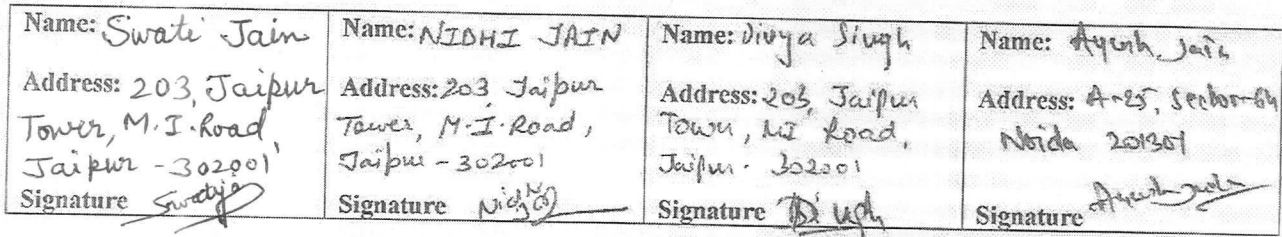 Name: Swati Jain
Address: 203, Jaipur
Tower, M.I. Road
Jaipur - 302001
Signature
Name: NIDHI JAIN
Address: 203 Jaipur
Tower, M.I. Road,
Jaipur - 302001
Signature
Name: Divya Singh
Address: 203, Jaipur
Tower, MI Road,
Jaipur - 302001
Signature
Name: Ayush Jain
Address: A-25, Sector-64
Noida 201301
Signature